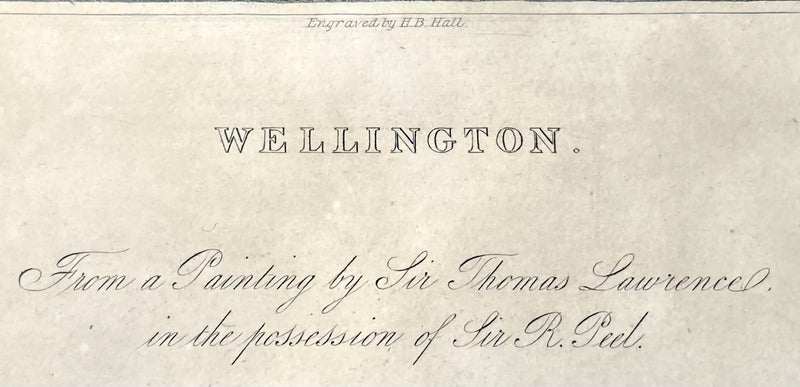 Engraved by H.B. Hall.
WELLINGTON.
From a Painting by Sir Thomas Lawrence.
in the possession of Sir R. Peel.